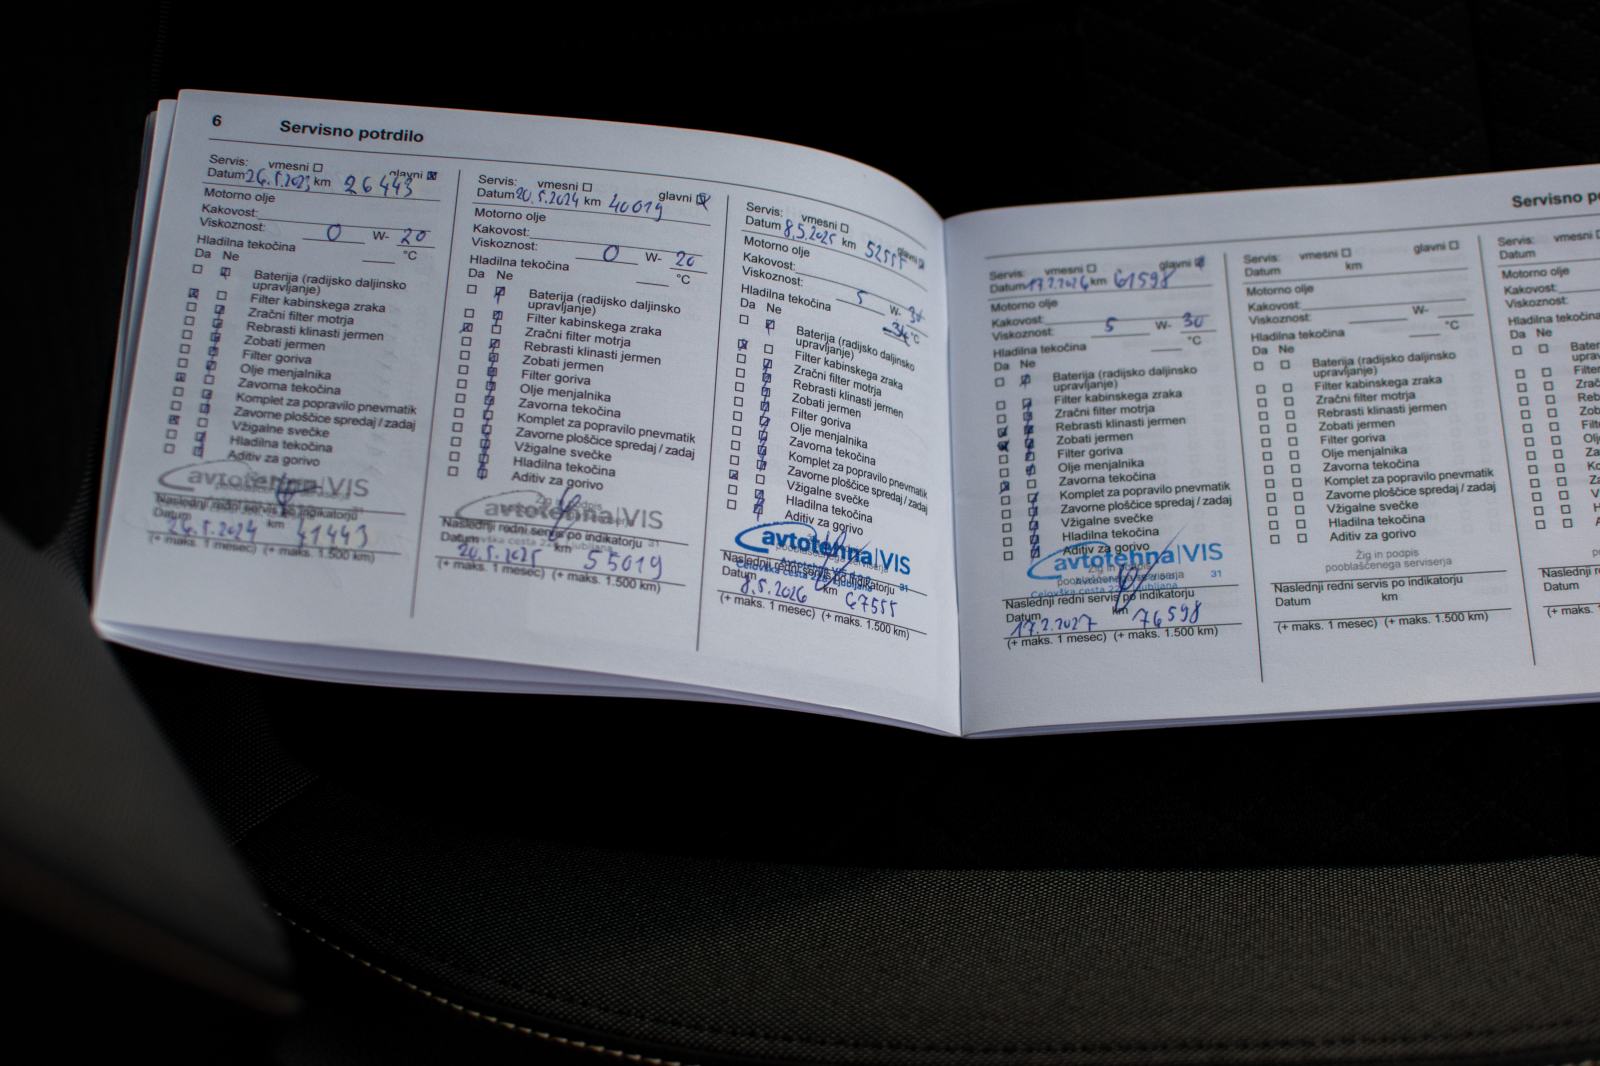 6 Servisno potrdilo
Servis: vmesni glavni
Datum 26.5.2023 km 26443
Motorno olje
Kakovost:
Viskoznost: 0 W- 20
Hladilna tekočina °C
Da Ne
Baterija (radijsko daljinsko
upravljanje)
Filter kabinskega zraka
Zračni filter motrja
Rebrasti klinasti jermen
Zobati jermen
Filter goriva
Olje menjalnika
Zavorna tekočina
Komplet za popravilo pnevmatik
Zavorne ploščice spredaj / zadaj
Vžigalne svečke
Hladilna tekočina
Aditiv za gorivo
avtotehna|VIS
Naslednji redni servis po indikatorju
Datum km
26.5.2024 41443
(+ maks. 1 mesec) (+ maks. 1.500 km)
Servis: vmesni glavni
Datum 20.5.2024 km 40019
Motorno olje
Kakovost:
Viskoznost: 0 W- 20
Hladilna tekočina °C
Da Ne
Baterija (radijsko daljinsko
upravljanje)
Filter kabinskega zraka
Zračni filter motrja
Rebrasti klinasti jermen
Zobati jermen
Filter goriva
Olje menjalnika
Zavorna tekočina
Komplet za popravilo pnevmatik
Zavorne ploščice spredaj / zadaj
Vžigalne svečke
Hladilna tekočina
Aditiv za gorivo
Žig in podpis
avtotehna|VIS
Naslednji redni servis po indikatorju
Datum km
20.5.2025 55019
(+ maks. 1 mesec) (+ maks. 1.500 km)
Servis: vmesni glavni
Datum 8.5.2025 km 52555
Motorno olje
Kakovost:
Viskoznost: 5 W- 30
Hladilna tekočina °C
Da Ne
Baterija (radijsko daljinsko
upravljanje)
Filter kabinskega zraka
Zračni filter motrja
Rebrasti klinasti jermen
Zobati jermen
Filter goriva
Olje menjalnika
Zavorna tekočina
Komplet za popravilo pnevmatik
Zavorne ploščice spredaj / zadaj
Vžigalne svečke
Hladilna tekočina
Aditiv za gorivo
avtotehna|VIS
Naslednji redni servis po indikatorju
Datum km
8.5.2026 67555
(+ maks. 1 mesec) (+ maks. 1.500 km)
Servisno
Servis: vmesni glavni
Datum 17.2.2026 km 61598
Motorno olje
Kakovost:
Viskoznost: 5 W- 30
Hladilna tekočina °C
Da Ne
Baterija (radijsko daljinsko
upravljanje)
Filter kabinskega zraka
Zračni filter motrja
Rebrasti klinasti jermen
Zobati jermen
Filter goriva
Olje menjalnika
Zavorna tekočina
Komplet za popravilo pnevmatik
Zavorne ploščice spredaj / zadaj
Vžigalne svečke
Hladilna tekočina
Aditiv za gorivo
avtotehna|VIS
Žig in podpis
31
Naslednji redni servis po indikatorju
Datum km
17.2.2027 76598
(+ maks. 1 mesec) (+ maks. 1.500 km)
Servis: vmesni glavni
Datum km
Motorno olje
Kakovost:
Viskoznost: W-
Hladilna tekočina °C
Da Ne
Baterija (radijsko daljinsko
upravljanje)
Filter kabinskega zraka
Zračni filter motrja
Rebrasti klinasti jermen
Zobati jermen
Filter goriva
Olje menjalnika
Zavorna tekočina
Komplet za popravilo pnevmatik
Zavorne ploščice spredaj / zadaj
Vžigalne svečke
Hladilna tekočina
Aditiv za gorivo
Žig in podpis
pooblaščenega serviserja
Naslednji redni servis po indikatorju
Datum km
(+ maks. 1 mesec) (+ maks. 1.500 km)
Servis: vmesni
Datum
Motorno olje
Kakovost:
Viskoznost:
Hladilna tekočina
Da Ne
Naslednji re
Datum
(+ maks. 1